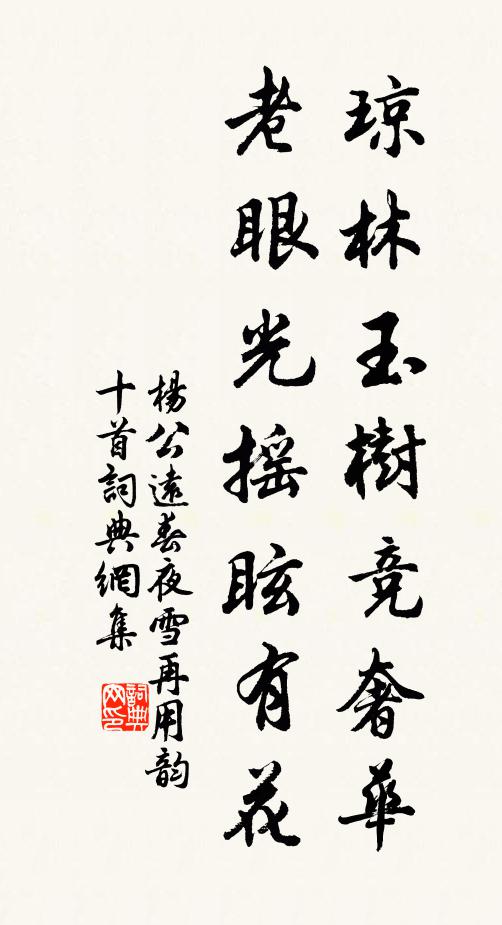 琼林玉樹竞奢華
老眼光摇眩有花
楊公遠春夜雪再用韵
十首詞典網集
詞典网印